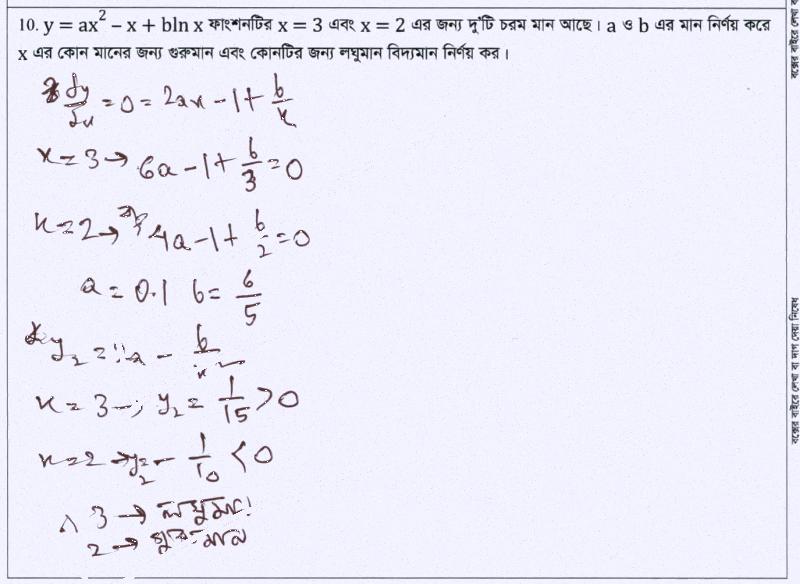 10. y = ax² – x + bln x ফাংশনটির x = 3 এবং x = 2 এর জন্য দু'টি চরম মান আছে। a ও b এর মান নির্ণয় করে
x এর কোন মানের জন্য গুরুমান এবং কোনটির জন্য লঘুমান বিদ্যমান নির্ণয় কর।
dy/dx = 0 = 2ax – 1 + b/x
x = 3 → 6a – 1 + b/3 = 0
x = 2 → 4a – 1 + b/2 = 0
a = 0.1 b = 6/5
y₂ = a – b/x²
x = 3 → y₂ = 1/15 > 0
x = 2 → y₂ = – 1/10 < 0
3 → লঘুমান
2 → গুরুমান
বক্সের বাইরে লেখা বা দাগ দেয়া নিষেধ